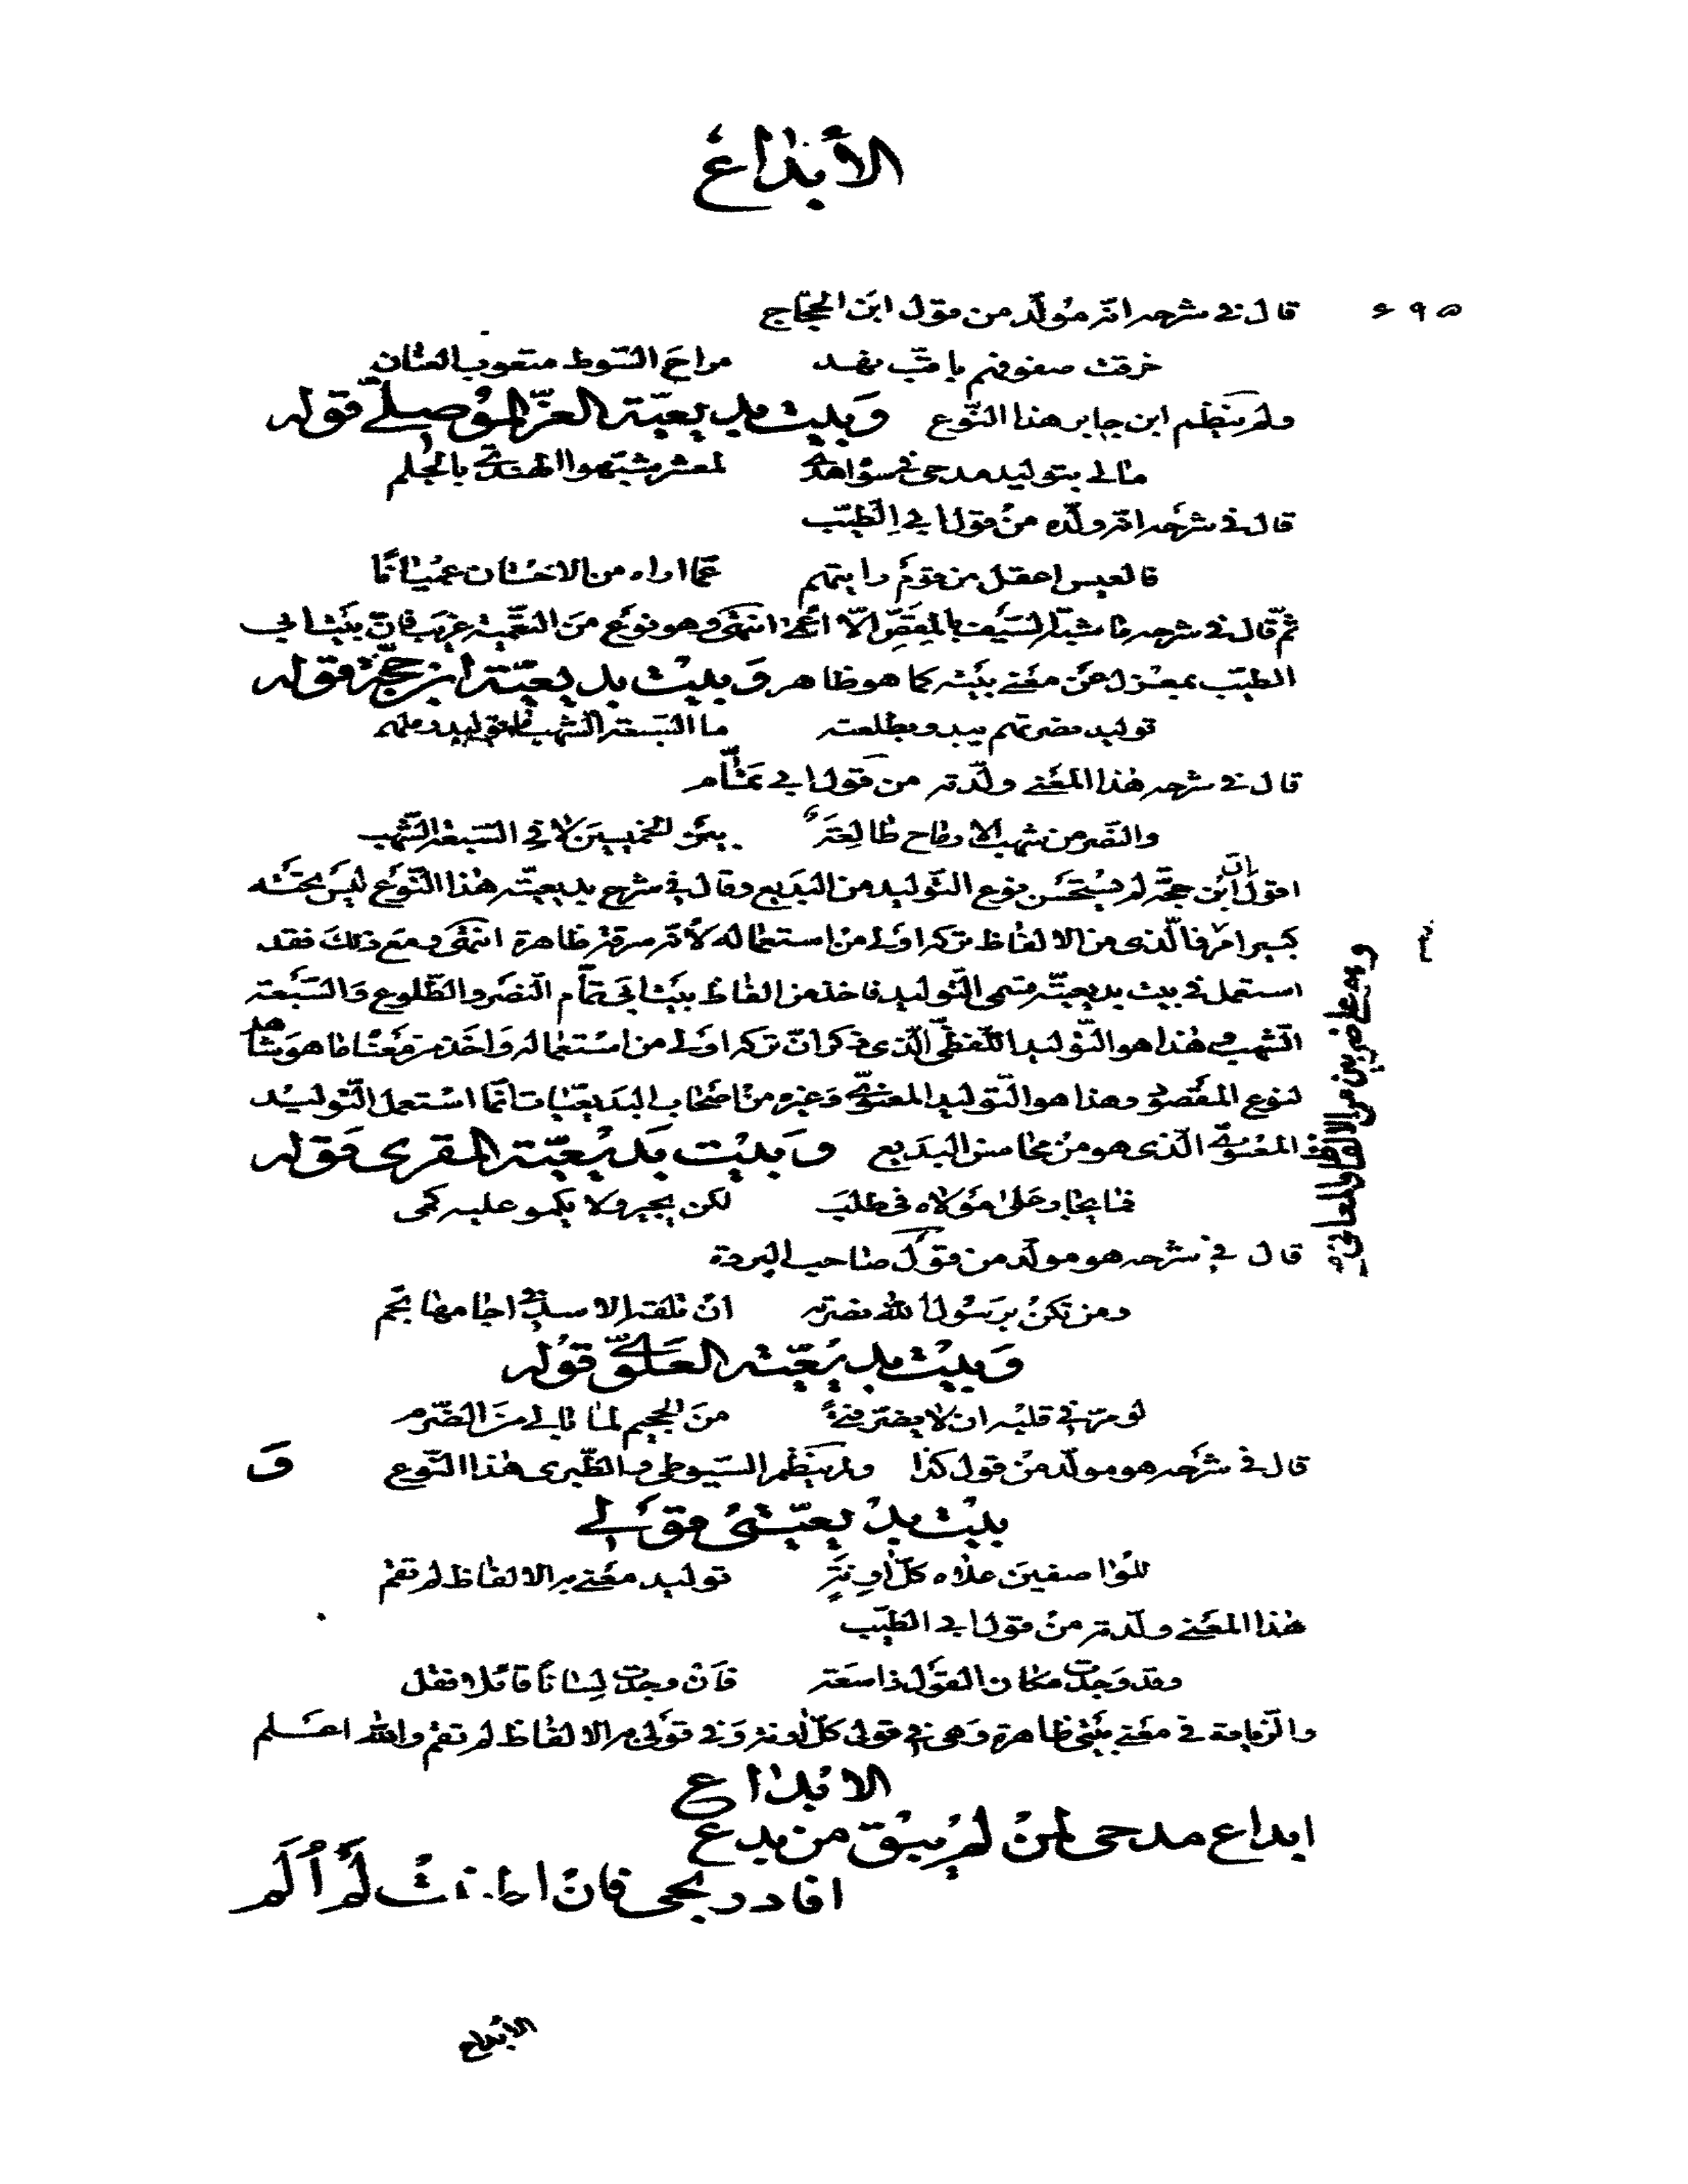 الأبداع
٤٩٥
قال في شرحه انه مولّد من قول ابن الحجّاج
خرقت صفوفهم باقبّ نهد مراح السّوط متعوب العنان
ولم ينظم ابن جابر هذا النّوع وبيت بديعيّة العزّ الموصليّ قوله
مالي بتوليد مدحي في سواهم لمعشر شبّهوا الهنديّ بالجلم
قال في شرحه انه ولّده من قول ابي الطيّب
فالعيس اعقل من قوم رايتهم عمّا اراه من الاحسان عميانا
ثمّ قال في شرحه ما شبّه السّيف بالمقصّ الّا اعمى انتهى وهو نوع من التعمية غريب فانّ بيت ابي
الطيّب بمعزل عن معنى بيته كما هو ظاهر وبيت بديعيّة ابن حجّة قوله
توليد نصرتهم يبدو بطلعته ما السّبعة الشّهب ما توليد رملهم
قال في شرحه هذا المعنى ولّدته من قول ابي تمّام
والنّصر من شهب الارماح طالعة بين الخميسين لا في السّبعة الشّهب
اقول انّ ابن حجّة لم يستحسن نوع التّوليد من البديع وقال في شرح بديعيّته هذا النّوع ليس تحته
كبير امر فالّذي من الالفاظ تركه اولى من استعماله لأنّه سرقة ظاهرة انتهى ومع ذلك فقد
استعمل في بيت بديعيّته قسمي التّوليد فاخذ من الفاظ بيت ابي تمّام النّصر والطّلوع والسّبعة
الشّهب وهذا هو التّوليد اللّفظيّ الّذي ذكر انّ تركه اولى من استعماله واخذ من معناه ما هو شاهد
لنوع المقصود وهذا هو التّوليد المعنويّ وغيره من اصحاب البديعيّات انّما استعمل التّوليد
المعنويّ الّذي هو من محاسن البديع وبيت بديعيّة المقري قوله
فما يجاد على مولاه في طلب لكن يجير ولا يكمو عليه كمي
قال في شرحه هو مولّد من قول صاحب البردة
ومن تكن برسول الله نصرته ان تلقه الاسد في اجامها تجم
وبيت بديعيّة العلويّ قوله
لو مرّ في قلبه ان لا يضرّ فتى من الجحيم لما نالي من الضّرم
قال في شرحه هو مولّد من قول كذا ولم ينظم السّيوطي والطّبري هذا النّوع و
بيت بديعيّتي قولي
للواصفين علاه كلّ اونة توليد معنى به الالفاظ لم تقم
هذا المعنى ولّدته من قول ابي الطيّب
وقد وجدت مكان القول ذا سعة فان وجدت لسانا قائلا فقل
والزّيادة في معنى بيتي ظاهرة وهي في قولي كلّ اونة وفي قولي به الالفاظ لم تقم والله اعلم
الابداع
ابداع مدحي لمن لم يبق من بدع
افاد ربحي فان اطنبت لم ألم
الأبداع
وهو على ضربين من الالفاظ والمعاني